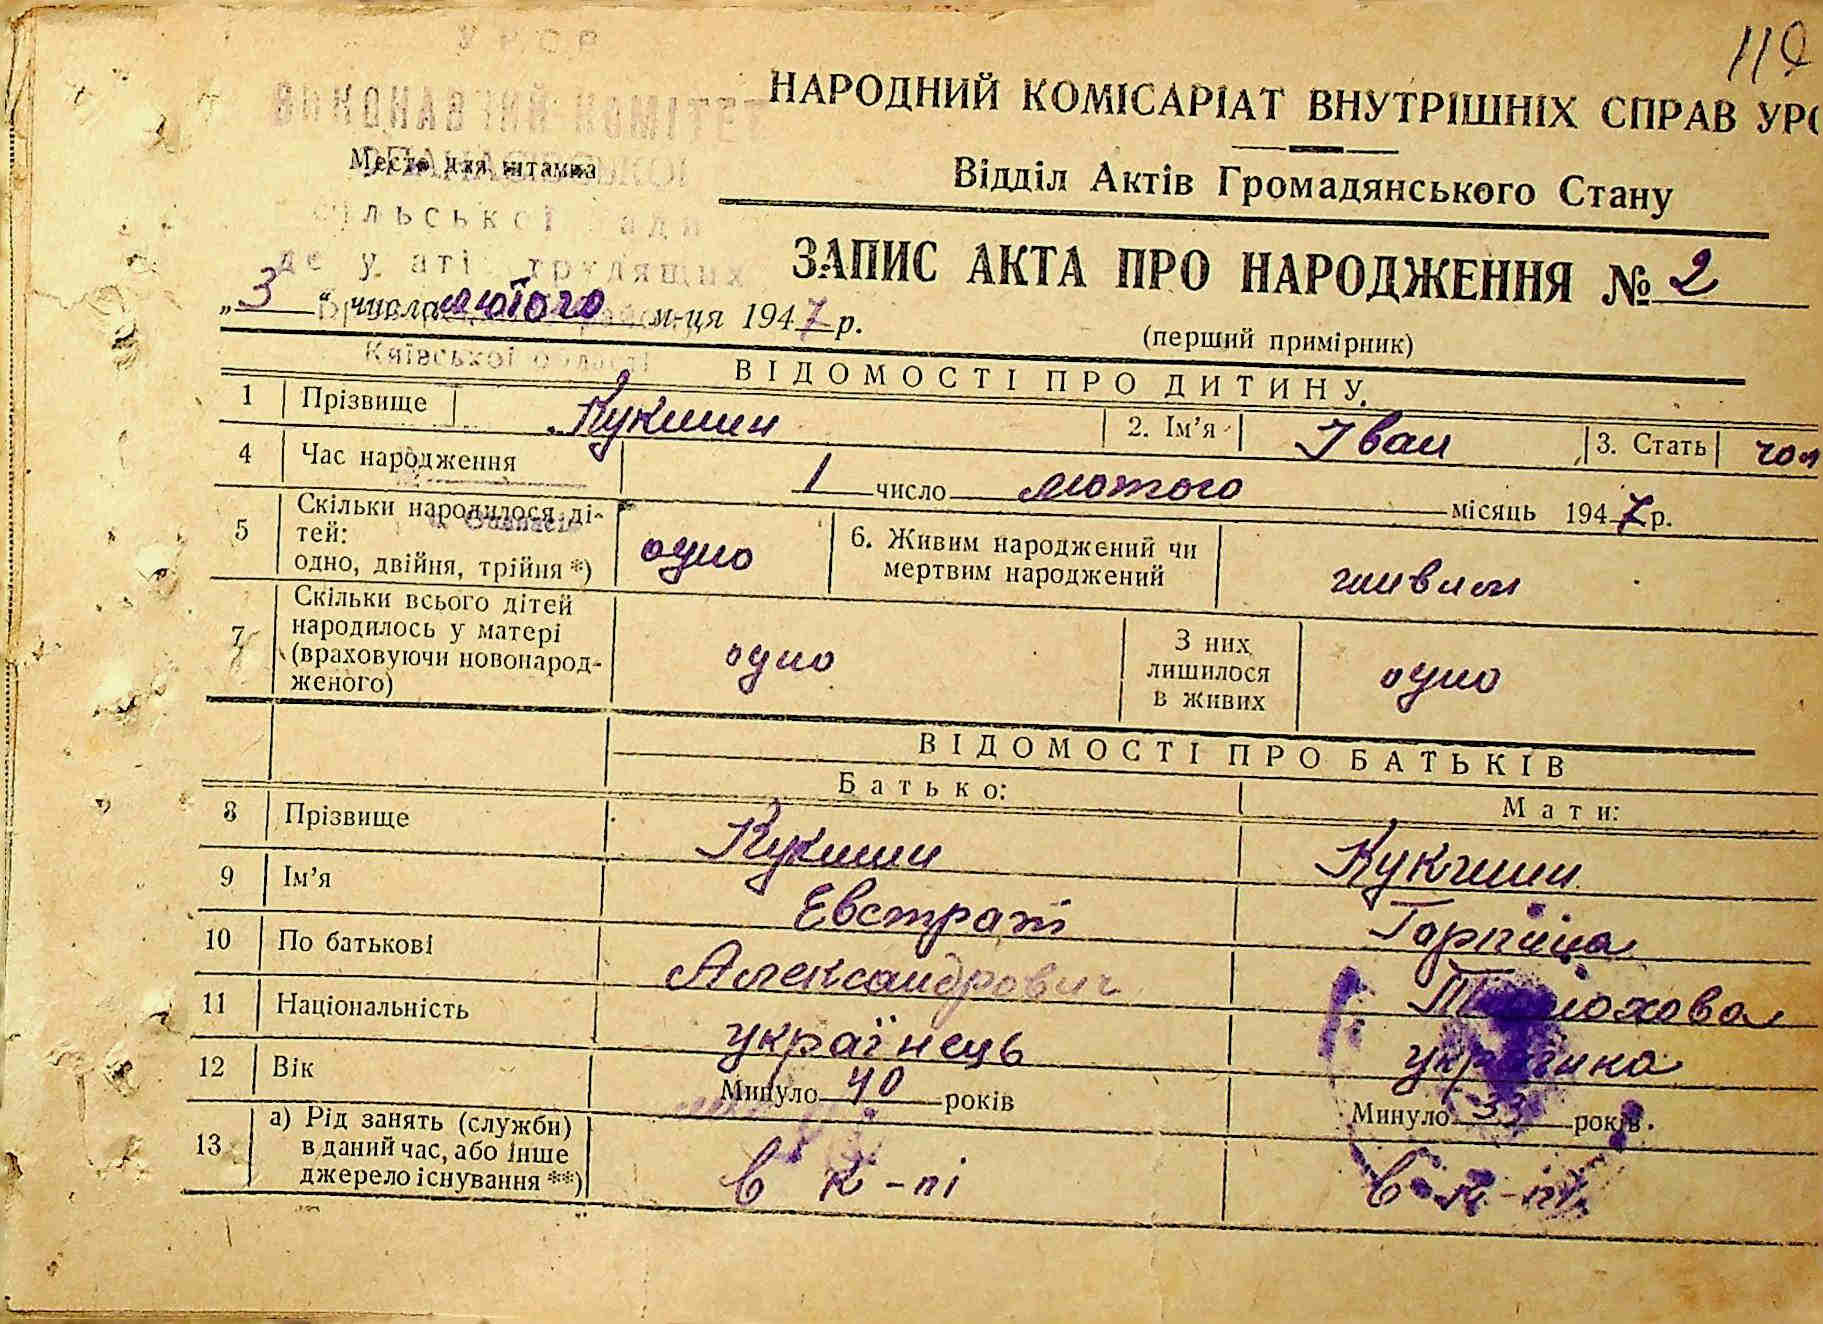 119
УРСР
ВИКОНАВЧИЙ КОМІТЕТ
НАРОДНИЙ КОМІСАРІАТ ВНУТРІШНІХ СПРАВ УРС
Место для штампа
Відділ Актів Громадянського Стану
сільської ради
депутатів трудящих
ЗАПИС АКТА ПРО НАРОДЖЕННЯ № 2
„3“ числа лютого м-ця 1947 р.
(перший примірник)
Київської області
ВІДОМОСТІ ПРО ДИТИНУ.
1 Прізвище Кукшин 2. Ім’я Іван 3. Стать чол
4 Час народження 1 число лютого місяць 1947 р.
5 Скільки народилося ді-
тей:
одно, двійня, трійня *) одно 6. Живим народжений чи
мертвим народжений живим
7 Скільки всього дітей
народилось у матері
(враховуючи новонарод-
женого) одно З них
лишилося
в живих одно
ВІДОМОСТІ ПРО БАТЬКІВ
Батько: Мати:
8 Прізвище Кукшин Кукшин
9 Ім’я Евстрат Горпина
10 По батькові Александрович
11 Національність українець
12 Вік Минуло 40 років Минуло 33 років.
13 а) Рід занять (служби)
в даний час, або інше
джерело існування **) в к-пі в к-пі